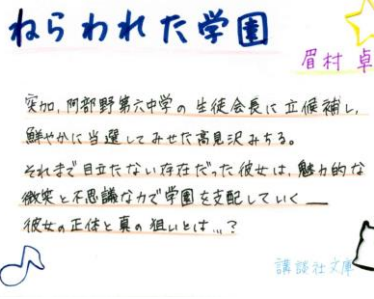 ねらわれた学園
眉村 卓
突如、阿部野第六中学の生徒会長に立候補し、
鮮やかに当選してみせた高見沢みちる。
それまで目立たない存在だった彼女は、魅力的な
微笑と不思議な力で学園を支配していく__
彼女の正体と真の狙いとは…?
講談社文庫